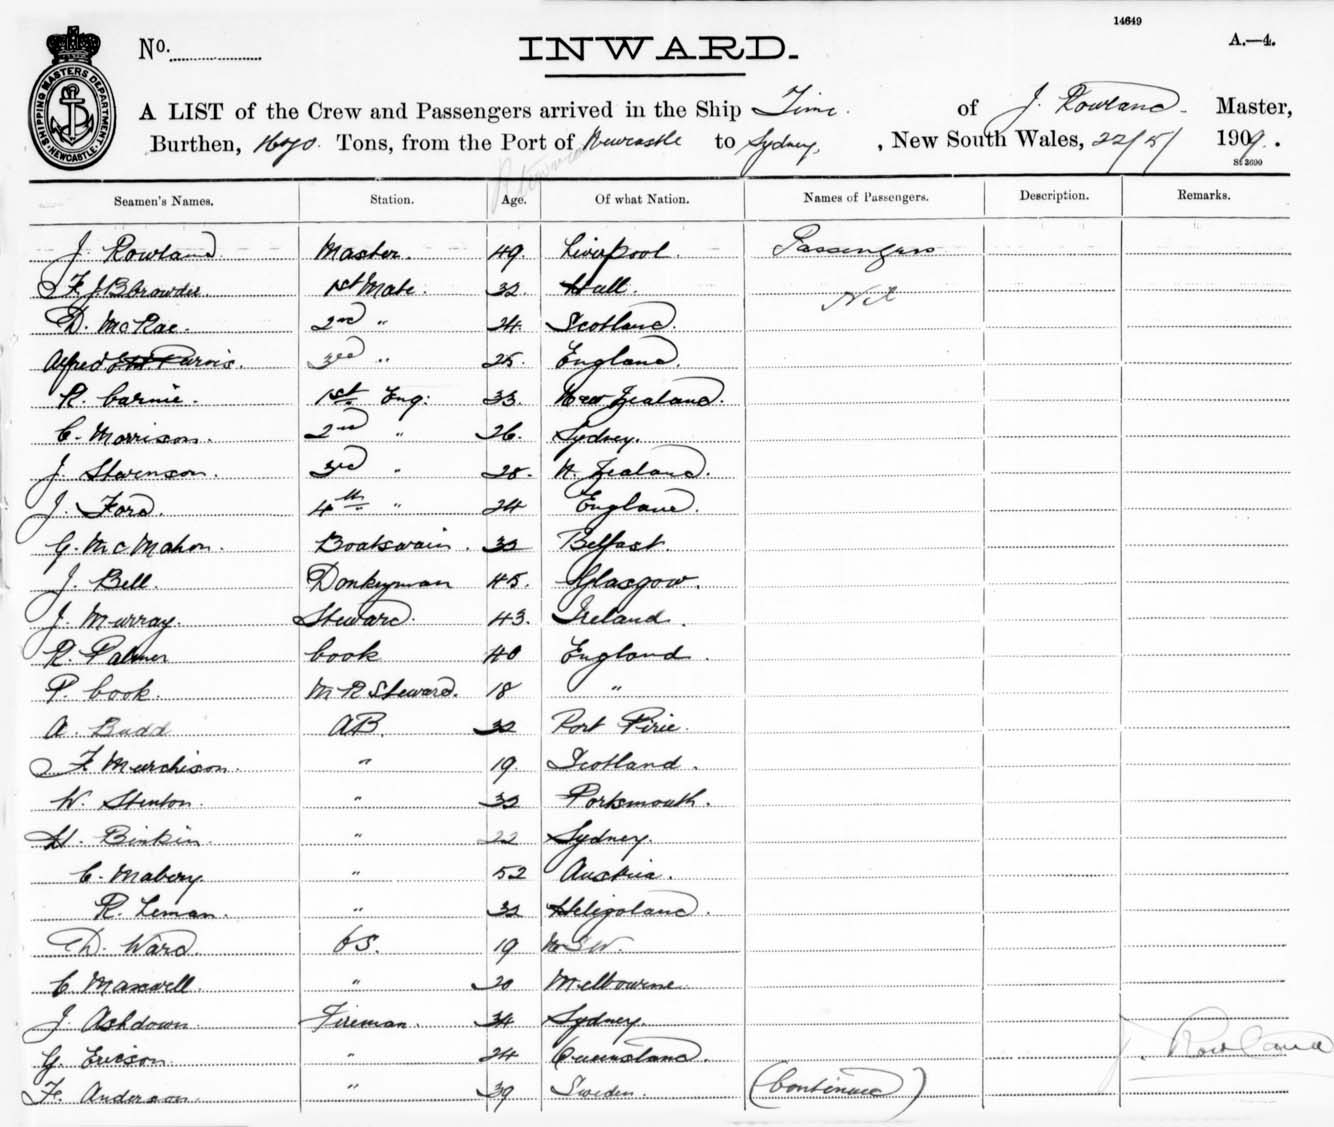 14649
A.—4.
No.
INWARD.
SHIPPING MASTERS DEPARTMENT. NEWCASTLE.
A LIST of the Crew and Passengers arrived in the Ship Time. of J. Rowland Master,
Burthen, Tons, from the Port of Newcastle to Sydney, , New South Wales, 22/5/ 1909.
St 3690
Seamen's Names. Station. Age. Of what Nation. Names of Passengers. Description. Remarks.
J. Rowland Master. 49. Liverpool. Passengers
F. J. Browder 1st Mate. 32 Hull. Nil
D. McRae. 2nd " 24. Scotland.
Alfred Purvis. 3rd " 25. England.
R. Carnie. 1st Eng. 33. New Zealand.
C. Morrison. 2nd " 26. Sydney.
J. Stevenson. 3rd " 28. N. Zealand.
J. Ford. 4th " 24 England.
G. McMahon. Boatswain. 32 Belfast.
J. Bell. Donkeyman 45. Glasgow.
J. Murray. Steward. 43. Ireland.
R. Palmer Cook 40 England.
P. Cook. M R Steward. 18 "
A. Budd AB. 32 Port Pirie.
F. Murchison. " 19 Scotland.
W. Stenton. " 32 Portsmouth.
H. Binkin. " 22 Sydney.
C. Mabery. " 52 Austria.
R. Leman. " 32 Heligoland.
D. Ward. OS. 19 NSW.
C Maxwell. " 20 Melbourne.
J. Ashdown. Fireman. 34 Sydney.
G. Ericson. " 24 Queensland. J. Rowland
F. Anderson. " 39 Sweden. (Continued)